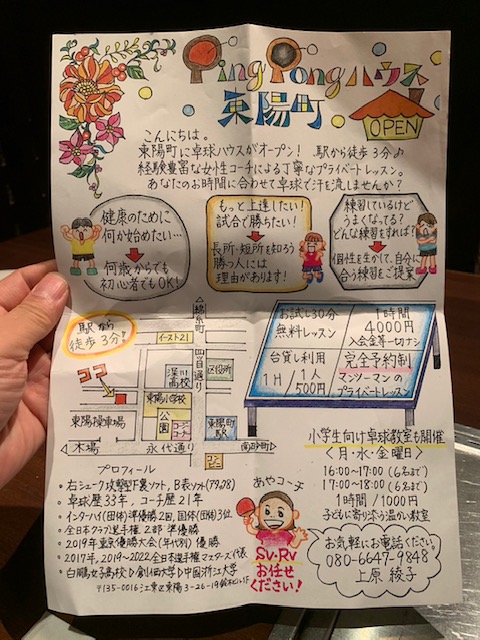 Ping Pong ハウス
東陽町
OPEN
こんにちは。
東陽町に卓球ハウスがオープン! 駅から徒歩3分♪
経験豊富な女性コーチによる丁寧なプライベートレッスン。
あなたのお時間に合わせて卓球で汗を流しませんか?
健康のために
何か始めたい…
何歳からでも
初心者でもOK!
もっと上達したい!
試合で勝ちたい!
長所・短所を知ろう
勝つ人には
理由があります!
練習しているけど
うまくなってる?
どんな練習をすれば?
個性を生かして、自分に
合う練習をご提案
駅から
徒歩3分♪
ココ
錦糸町
イースト21
四目通り
深川
高校
区役所
東陽小学校
公園
コーナン
東陽町
駅
東陽操車場
木場
永代通り
南砂町
コンビニ
お試し30分
無料レッスン
1時間
4000円
入会金等一切ナシ
台貸し利用
1H/1人
500円
完全予約制
マンツーマンの
プライベートレッスン
小学生向け卓球教室も開催
<月・水・金曜日>
16:00~17:00(6名まで)
17:00~18:00(6名まで)
1時間/1000円
子どもに寄り添う温かい教室
プロフィール
・右シェーク攻撃型F裏ソフト、B表ソフト
・卓球歴33年、コーチ歴21年
・インターハイ(団体)準優勝2回、国体(団体)3位
・全日本クラブ選手権2部 準優勝
・2019年東京優勝大会(年代別)優勝
・2017年、2019~2022全日本選手権マスターズ代表
・白鵬女子高校▷創価大学▷中国浙江大学
〒135-0016 江東区東陽3-26-19鈴木ビル1F
あやコーチ
SV・RV
お任せ
ください!
お気軽にお電話ください。
080-6647-9848
上原 綾子